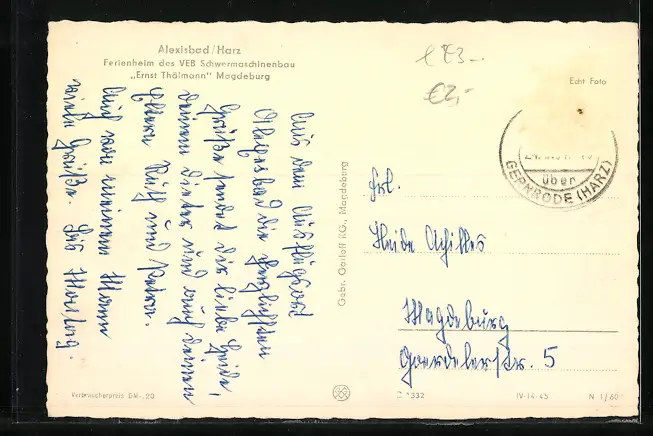 Alexisbad/Harz
Ferienheim des VEB Schwermaschinenbau
„Ernst Thälmann" Magdeburg
Echt Foto
über
GERNRODE (HARZ)
€2,-
Aus dem Ausflugsort
Alexisbad die herzlichsten
Grüße sendet dir liebe Heide,
deinem Dieter und auch deinen
Eltern Ruth und
Auch von meinem Mann
viele Grüße. Bis Montag.
Gebr. Garloff KG., Magdeburg
Frl.
Heide Achilles
Magdeburg
Goerdelerstr. 5
Verbraucherpreis DM -,20
1332
IV-14-45
N 1/60